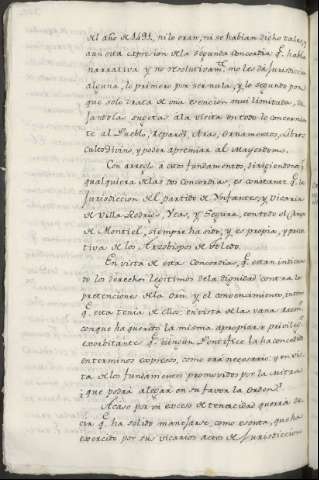 del año de 1491, ni lo eran, ni se habian dicho tales; y
aun esta expresion de la segunda concordia q.e habla
narrativa y no resolutivam.te no les da Jurisdiccion
alguna, lo primero por ser nula, y lo segundo por
que solo trata de una esencion mui limitada, de
jandola sugeta a la visita en todo lo concernien
te al Pueblo, reparos, Aras, ornamentos, libros
culto Divino, y poder apremiar al Mayordomo.
Con arreglo a estos fundamentos, y dirigiendonos a
qualquiera de las dos Concordias, es constante q.e la
Jurisdiccion del partido de Ynfantes, y Vicaría
de Villa Rodrigo, Yeas, y Segura, con todo el Campo
de Montiel, siempre ha sido, y es propia, y priva
tiva de los Arzobispos de Toledo.
En vista de esta Concordia, q.e estan indican
do los derechos legitimos de la dignidad contra la
pretenciones de la Orn. y el convencimiento, intimo
q.e esta tenia de ellos en vista de las vanas
conque ha querido la misma apropiarse privilegios
exorbitantes q.e ningun Pontifice la ha concedido
en terminos expresos, como era necesario y en vis
ta de los fundamentos promovidos por la Mitra
¿que podrá alegar en su favor la Orden?
Acaso por un exceso de tenacidad querrá de
cir q.e ha solido manejarse, como esenta, que ha
exercido por sus vicarios actos de Jurisdiccion